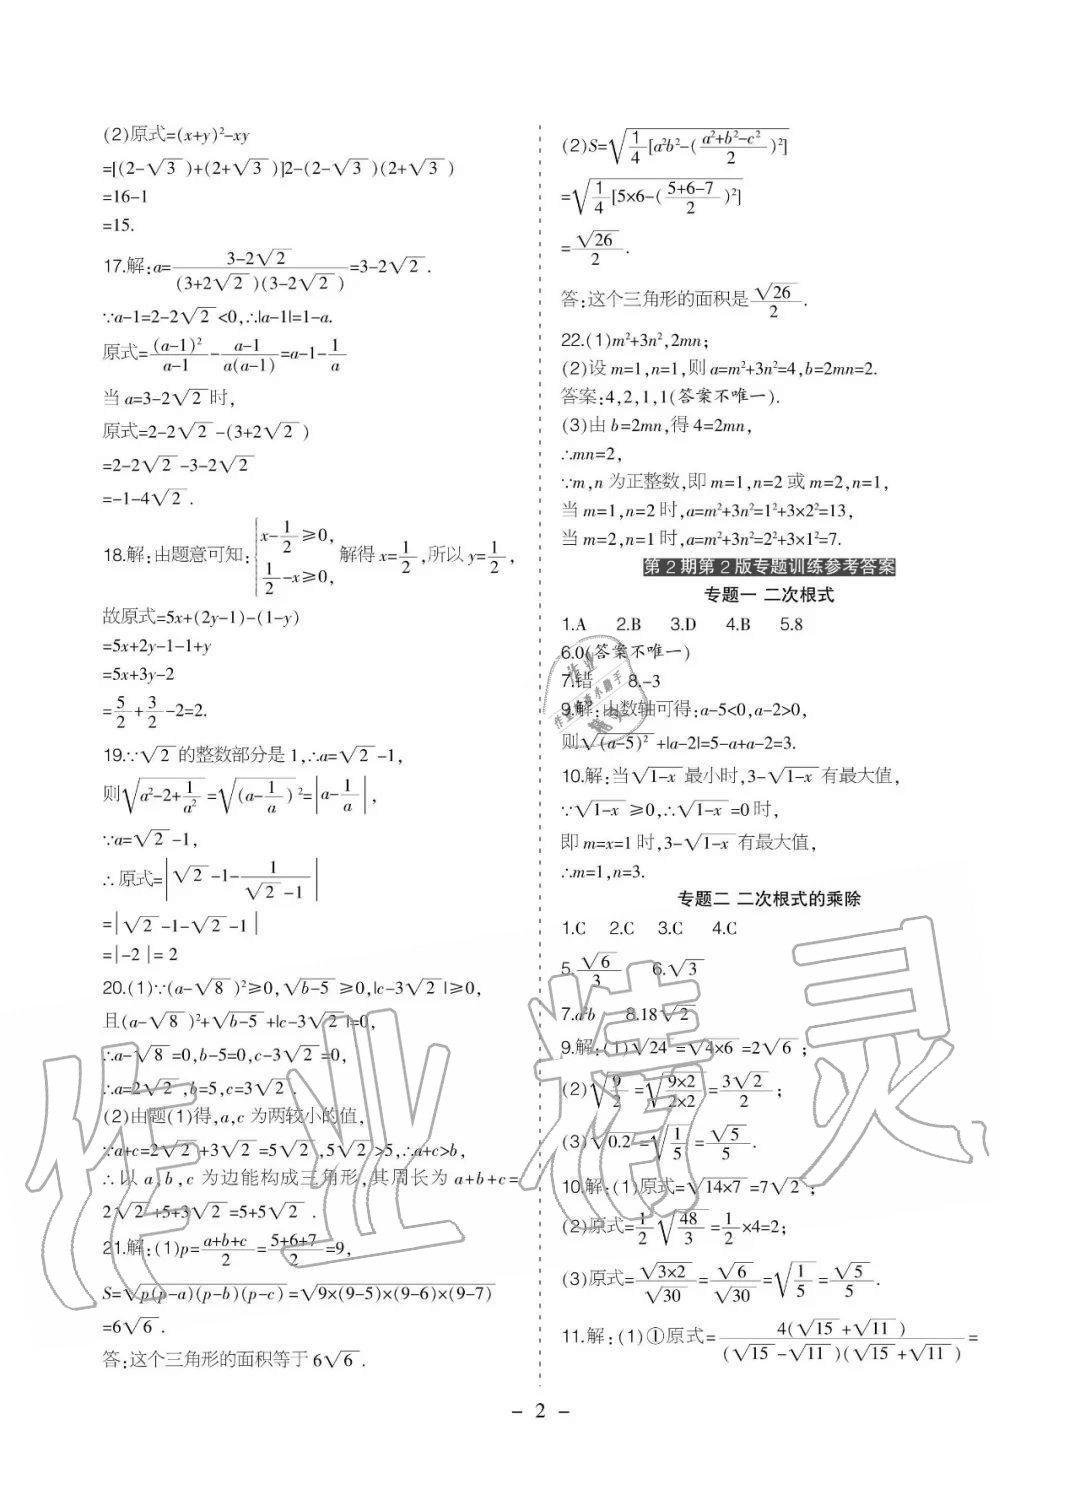 (2)原式=(x+y)²-xy
=[(2-√3)+(2+√3)]2-(2-√3)(2+√3)
=16-1
=15.
17.解:a=(3-2√2)/((3+2√2)(3-2√2))=3-2√2.
∵a-1=2-2√2<0,∴|a-1|=1-a.
原式=(a-1)²/(a-1)-(a-1)/(a(a-1))=a-1-1/a
当a=3-2√2时,
原式=2-2√2-(3+2√2)
=2-2√2-3-2√2
=-1-4√2.
18.解:由题意可知:{x-1/2≥0, 1/2-x≥0, 解得x=1/2,所以y=1/2,
故原式=5x+(2y-1)-(1-y)
=5x+2y-1-1+y
=5x+3y-2
=5/2+3/2-2=2.
19.∵√2的整数部分是1,∴a=√2-1,
则√(a²-2+1/a²)=√((a-1/a)²)=|a-1/a|,
∵a=√2-1,
∴原式=|√2-1-1/(√2-1)|
=|√2-1-√2-1|
=|-2|=2
20.(1)∵(a-√8)²≥0,√(b-5)≥0,|c-3√2|≥0,
且(a-√8)²+√(b-5)+|c-3√2|=0,
∴a-√8=0,b-5=0,c-3√2=0,
∴a=2√2,b=5,c=3√2.
(2)由题(1)得,a,c为两较小的值,
∵a+c=2√2+3√2=5√2,5√2>5,∴a+c>b,
∴以a,b,c为边能构成三角形,其周长为a+b+c=
2√2+5+3√2=5+5√2.
21.解:(1)p=(a+b+c)/2=(5+6+7)/2=9,
S=√(p(p-a)(p-b)(p-c))=√(9×(9-5)×(9-6)×(9-7))
=6√6.
答:这个三角形的面积等于6√6.
(2)S=√(1/4[a²b²-((a²+b²-c²)/2)²])
=√(1/4[5×6-((5+6-7)/2)²])
=√26/2.
答:这个三角形的面积是√26/2.
22.(1)m²+3n²,2mn;
(2)设m=1,n=1,则a=m²+3n²=4,b=2mn=2.
答案:4,2,1,1(答案不唯一).
(3)由b=2mn,得4=2mn,
∴mn=2,
∵m,n为正整数,即m=1,n=2或m=2,n=1,
当m=1,n=2时,a=m²+3n²=1²+3×2²=13,
当m=2,n=1时,a=m²+3n²=2²+3×1²=7.
第2期第2版专题训练参考答案
专题一 二次根式
1.A 2.B 3.D 4.B 5.8
6.0(答案不唯一)
7.错 8.-3
9.解:由数轴可得:a-5<0,a-2>0,
则√((a-5)²)+|a-2|=5-a+a-2=3.
10.解:当√(1-x)最小时,3-√(1-x)有最大值,
∵√(1-x)≥0,∴√(1-x)=0时,
即m=x=1时,3-√(1-x)有最大值,
∴m=1,n=3.
专题二 二次根式的乘除
1.C 2.C 3.C 4.C
5.√6/3 6.√3
7.a²b 8.18√2
9.解:(1)√24=√(4×6)=2√6;
(2)√(9/2)=√((9×2)/(2×2))=3√2/2;
(3)√0.2=√(1/5)=√5/5.
10.解:(1)原式=√(14×7)=7√2;
(2)原式=1/2√(48/3)=1/2×4=2;
(3)原式=√(3×2)/√30=√6/√30=√(1/5)=√5/5.
11.解:(1)①原式=4(√15+√11)/((√15-√11)(√15+√11))=
- 2 -
作业精灵